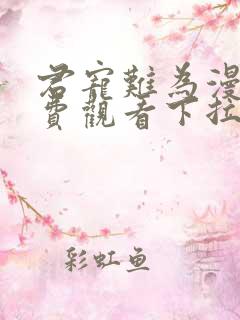 君寵難為漫
費觀看下拉
彩虹鱼